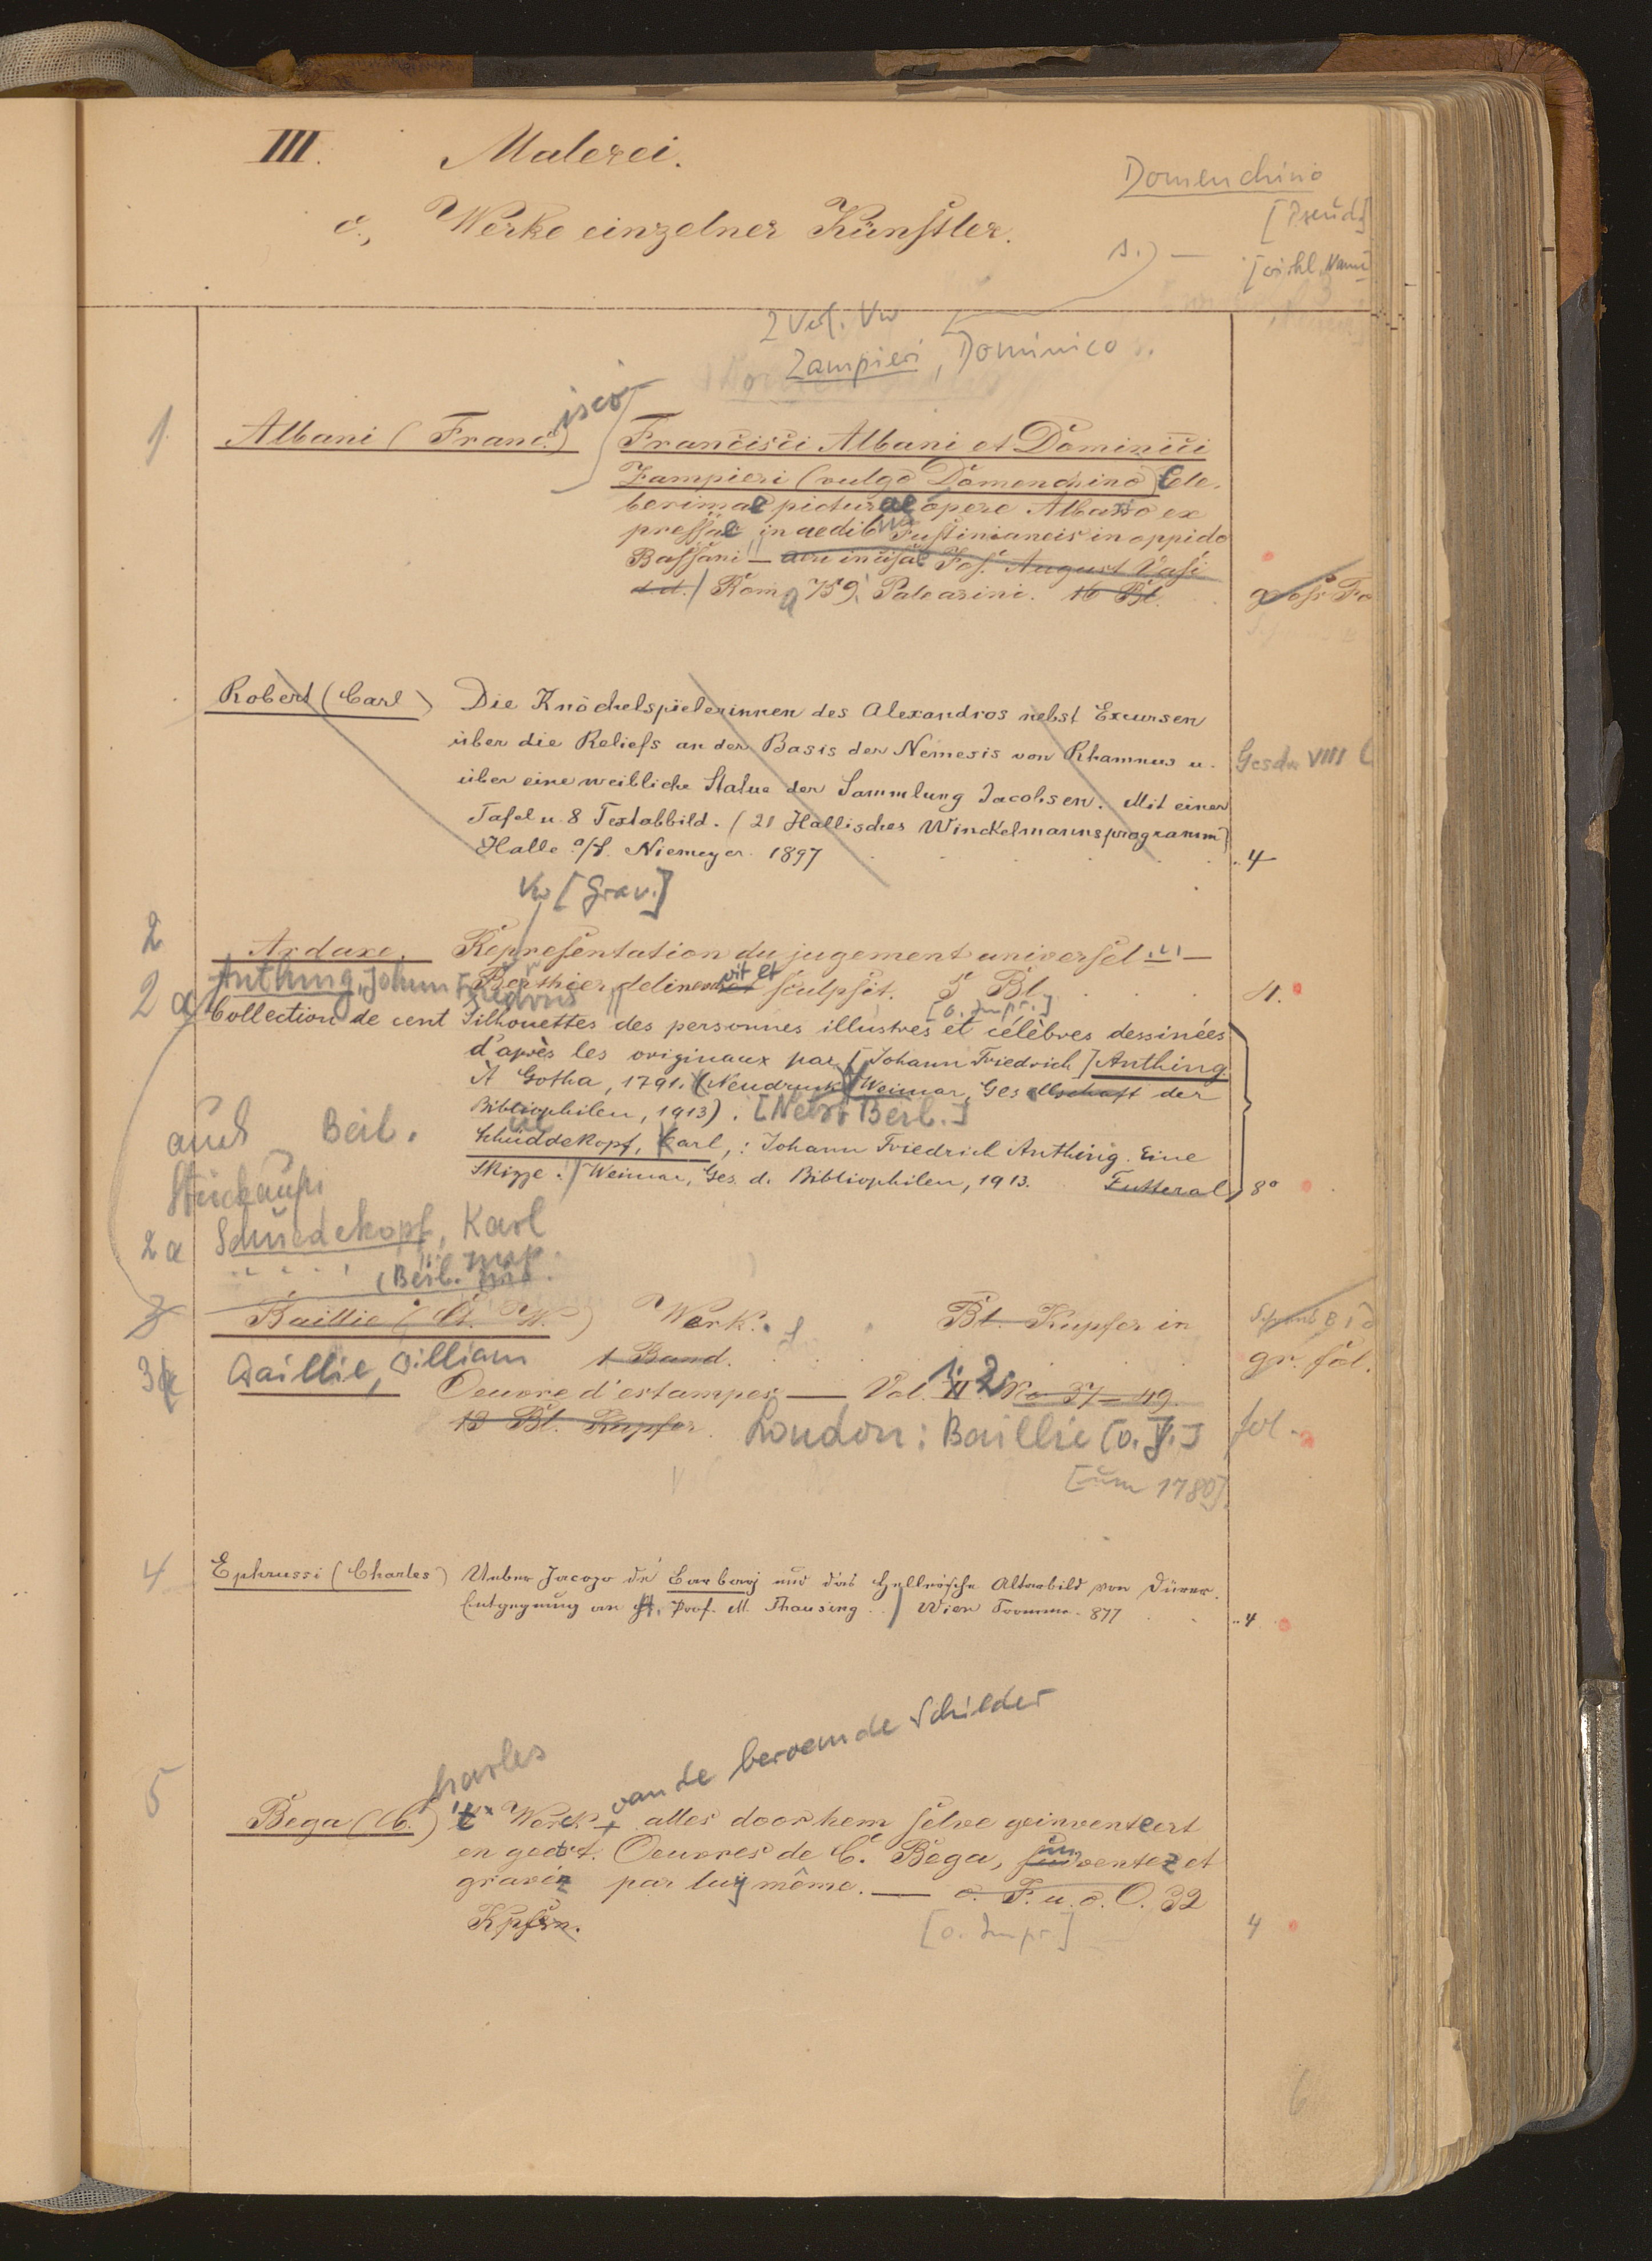 III. Malerei.
Domenchino
[Pseud.]
c., Werke einzelner Künstler.
s.) — [wirkl. Name]
2 Verf. Vw
Zampieri, Dominico
isco
1 Albani (Franc.) Francisci Albani et Dominici
Zampieri (vulgo Domenchino) Cele-
berimae picturae opere Albano ex
pressae in aedib Justinianeis in oppido
Bassani — aeri incisae Jos. August Vasi
d.d. / Rom 759. Palearini. 16 Bl.
gross Fo
Robert (Carl) Die Knöchelspielerinnen des Alexandros nebst Excursen
über die Reliefs an der Basis der Nemesis von Rhamnus u. Gesch. VIII
über eine weibliche Statue der Sammlung Jacobsen. Mit einer
Tafel u. 8 Textabbild. (21 Hallisches Winckelmannsprogramm)
Halle a/S. Niemeyer. 1897 . . 4
Vw [Grav.]
2 Ardaxe. Representation du jugement universel —
Berthier delineavit et sculpsit. 5 Bl. 4.
2a Anthing, Johann Friedrich [o. Impr.]
Collection de cent Silhouettes des personnes illustres et célèbres dessinées
d'après les originaux par [Johann Friedrich] Anthing.
A Gotha, 1791. (Neudruck Weimar, Gesellschaft der
Bibliophilen, 1913). [Nebst Beil.]
auch Beil. Schüddekopf, Karl, : Johann Friedrich Anthing. Eine
Skizze. / Weimar, Ges. d. Bibliophilen, 1913. Futteral 8°
2a Schüddekopf, Karl
(Beil.
3 Baillie (C. W.) Werk. Bl. Kupfer in
1 Band. gr. fol.
3 Baillie, William
Oeuvre d'estampes — Vol. 1. 2 No 37–49
13 Bl. Kupfer. London: Baillie [o. J.] fol.
[um 1780]
4 Ephrussi (Charles) Ueber Jacopo de' Barbarj und das Hellerische Altarbild von Dürer.
Entgegnung an H. Prof. M. Thausing . / Wien Fromme. 877 . . 4
charles
van de beroemde Schilder
5 Bega (C.) 't Werck alles door hem selve geinventeert
en geest. Oeuvres de C. Bega, inventez et
gravéz par luy même. — o. T. u. o. O. 32
Kpfrn. [o. Impr.] 4
6